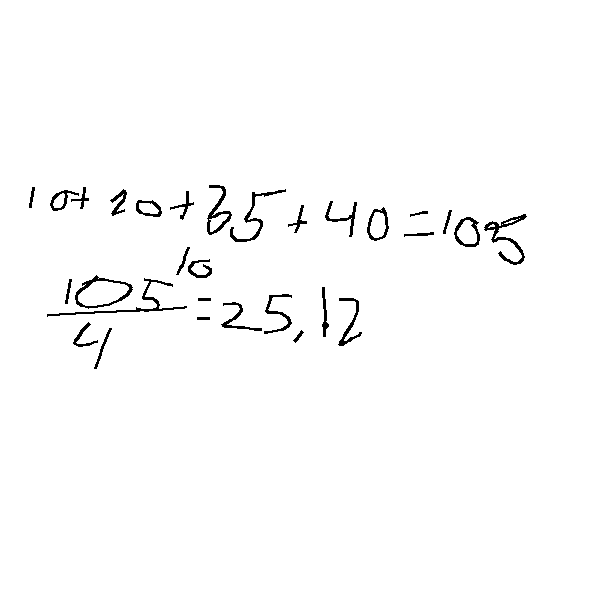 10+ 20+35+40=105
10
105/4=25,12